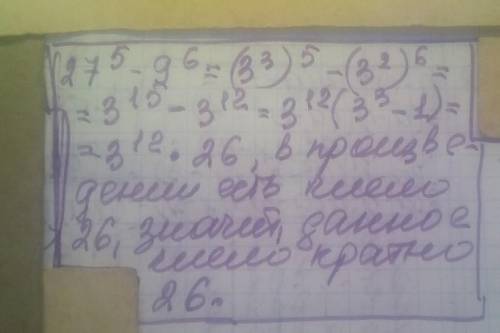 27⁵ - 9⁶ = (3³)⁵ - (3²)⁶ =
= 3¹⁵ - 3¹² = 3¹²(3³ - 1) =
= 3¹² · 26, в произве-
дении есть число
26, значит, данное
число кратно
26.